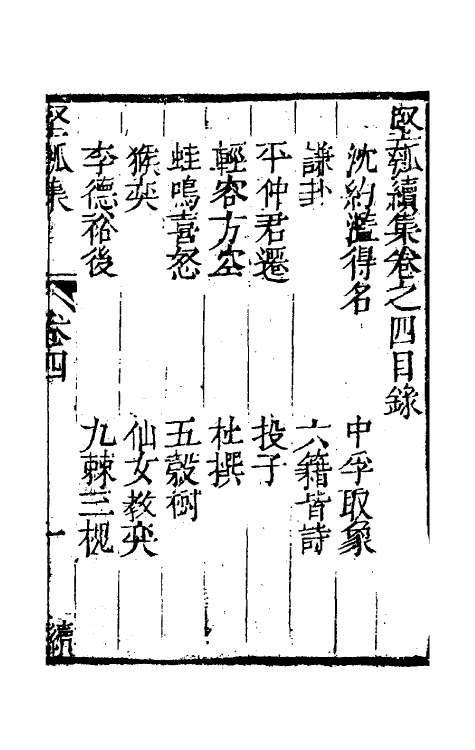 堅瓠續集卷之四目錄
沈約濫得名　中孚取象
謙卦　六籍皆詩
平仲君遷　投子
輕容方空　杜撰
蛙鳴喜怒　五穀樹
猴奕　仙女教奕
李德裕後　九棘三槐
堅瓠集　卷四　一　續